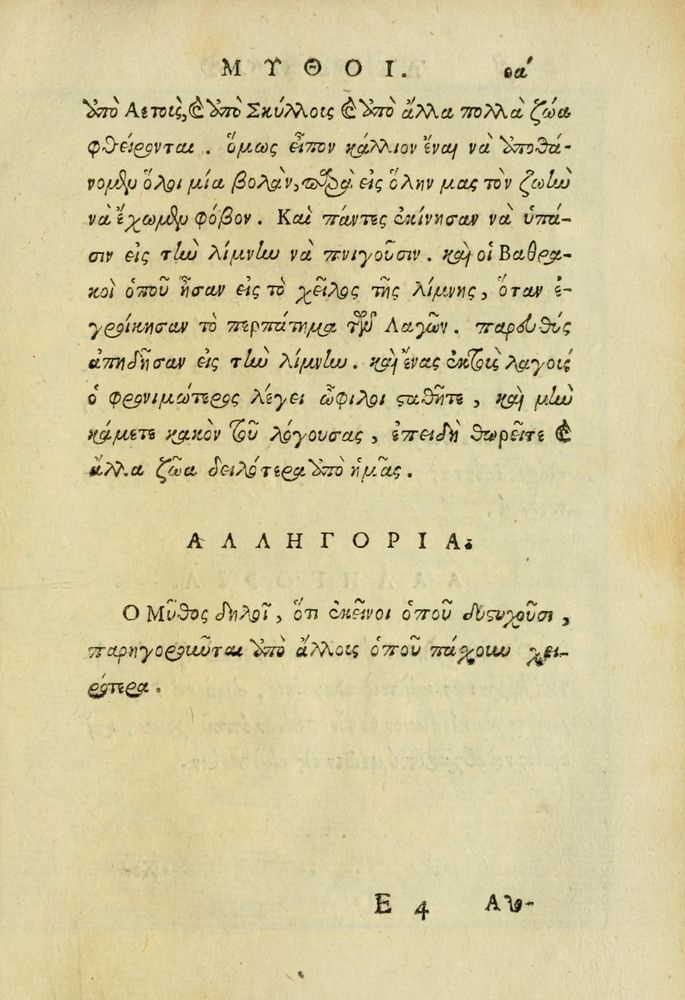 ΜΥΘΟΙ. οα΄
ὑπὸ Αετοὶς, καὶ ὑπὸ Σκύλλοις καὶ ὑπὸ ἄλλα πολλὰ ζῶα
φθείρονται. ὅμως εἶπον κάλλιον ἔναι νὰ ὑποθά-
νομεν ὅλοι μία βολὰν, παρὰ εἰς ὅλην μας τὸν ζωὴν
νὰ ἔχωμεν φόβον. Καὶ πάντες ἐκίνησαν νὰ ὑπά-
σιν εἰς τὴν λίμνην νὰ πνιγοῦσιν. καὶ οἱ Βαθρα-
κοὶ ὁποῦ ἦσαν εἰς τὸ χεῖλος τῆς λίμνης, ὅταν ἐ-
γροίκησαν τὸ περπάτημα τῶν Λαγῶν. παρευθύς
ἀπηδῆσαν εἰς τὴν λίμνην. καὶ ἕνας ἐκ τοὶς λαγοὶς
ὁ φρονιμώτερος λέγει ὦ φιλοι σταθῆτε, καὶ μὴν
κάμετε κακὸν τοῦ λόγουσας, ἐπειδὴ θωρεῖτε καὶ
ἄλλα ζῶα δειλότερα ὑπὸ ἡμᾶς.
ΑΛΛΗΓΟΡΙΑ.
Ο Μῦθος δηλοῖ, ὅτι ἐκεῖνοι ὁποῦ δυστυχοῦσι,
παρηγοριοῦνται ὑπὸ ἄλλοις ὁποῦ πάχουν χει-
ρότερα.
E 4 Αυ-